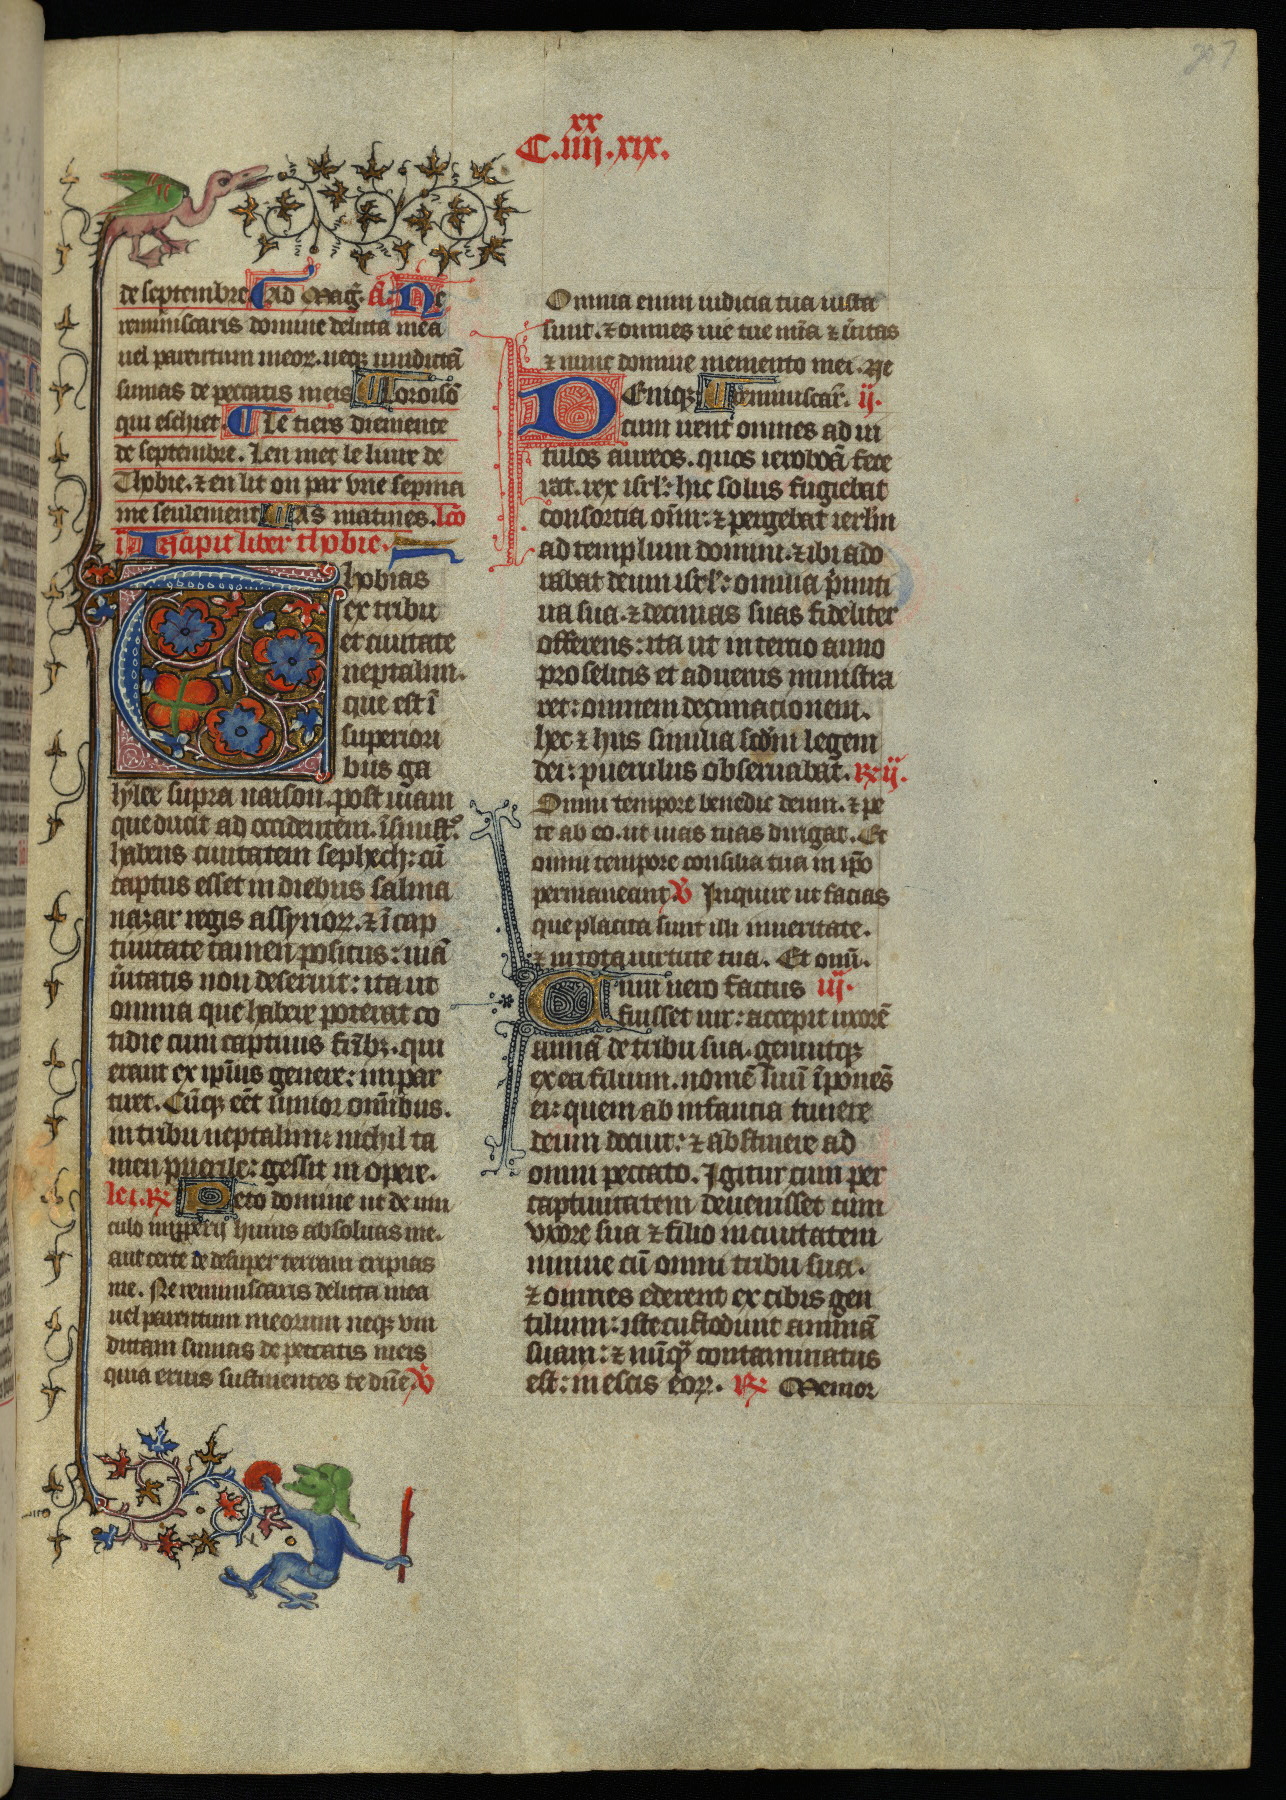 207
xx
C.iiij.xix.
de septembre. Ad Mag̃. A͂. Ne
reminiscaris domine delicta mea
uel parentum meoꝝ. neqꝫ uindictã
sumas de peccatis meis
qui eschiet. Le tiers diemenie
de septembre. Len met le liure de
Thobie. ⁊ en lit on par vne sepma
ine seulement. AS matines. lcõ
i. Incipit liber thobie.
Thobias
ex tribu
et ciuitate
neptalim.
que est ĩ
superiori
bus ga
lylee supra naason. post uiam
que ducit ad occidentem. ĩ sinist͛
habens ciuitatem sephech: cũ
captus esset in diebus salma
nazar regis assyrioꝝ. ⁊ ĩ cap
tiuitate tamen positus: uiã
ũitatis non deseruit: ita ut
omnia que habere poterat co
tidie cum captiuis fr̃ibꝫ. qui
erant ex ip̃ius genere: impar
tiret. Cũqꝫ eẽt iũnior omĩbus.
in tribu neptalim: nichil ta
men puerile: gessit in opere.
lci. ℞ Peto domine ut de uin
culo improperij huius absoluas me.
aut certe de desuper terram eripias
me. Ne reminiscaris delicta mea
uel parentum meorum neqꝫ vin
dictam sumas de peccatis meis
quia eruis sustinentes te dñe. ℣
Omnia enim iudicia tua iusta
sunt. ⁊ omnes uie tue mĩa ⁊ ũitas
⁊ nunc domine memento mei. Ne
DEniqꝫ reminiscar͛. ij.
cum irent omnes ad ui
tulos aureos. quos ieroboã fece
rat. rex isrl̃: hic solus fugiebat
consortia om̃iu: ⁊ pergebat ierl̃m
ad templum domini. ⁊ ibi ado
rabat deum isrl̃: omnia p̃miti
ua sua. ⁊ decimas suas fideliter
offerens: ita ut in tercio anno
proselitis et aduenis ministra
ret: omnem decimacionem.
hec ⁊ hiis similia scd̃m legem
dei: puerulus obseruabat. ℞ ij.
Omni tempore benedic deum. ⁊ pe
te ab eo. ut uias tuas dirigat. Et
omni tempore consilia tua in ip̃o
permaneant. ℣ Inquire ut facias
que placita sunt illi in ueritate.
⁊ in tota uirtute tua. Et om̃i.
Cum uero factus iij.
fuisset uir: accepit uxorẽ
annã de tribu sua. genuitqꝫ
ex ea filium. nomẽ suũ ĩponẽs
ei: quem ab infantia timere
deum docuit: ⁊ abstinere ab
omni peccato. Igitur cum per
captiuitatem deuenisset cum
vxore sua ⁊ filio in ciuitatem
niniue cũ omni tribu sua.
⁊ omnes ederent ex cibis gen
tilium: iste custodiuit animã
suam: ⁊ nũqꝫ contaminatus
est: in escis eoꝝ. ℞ Memor